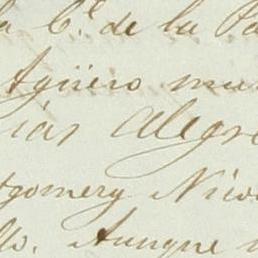 a C.ª de la Pa
Agüero mu
ias Alegre
tgomery Nico
llo. Aunque